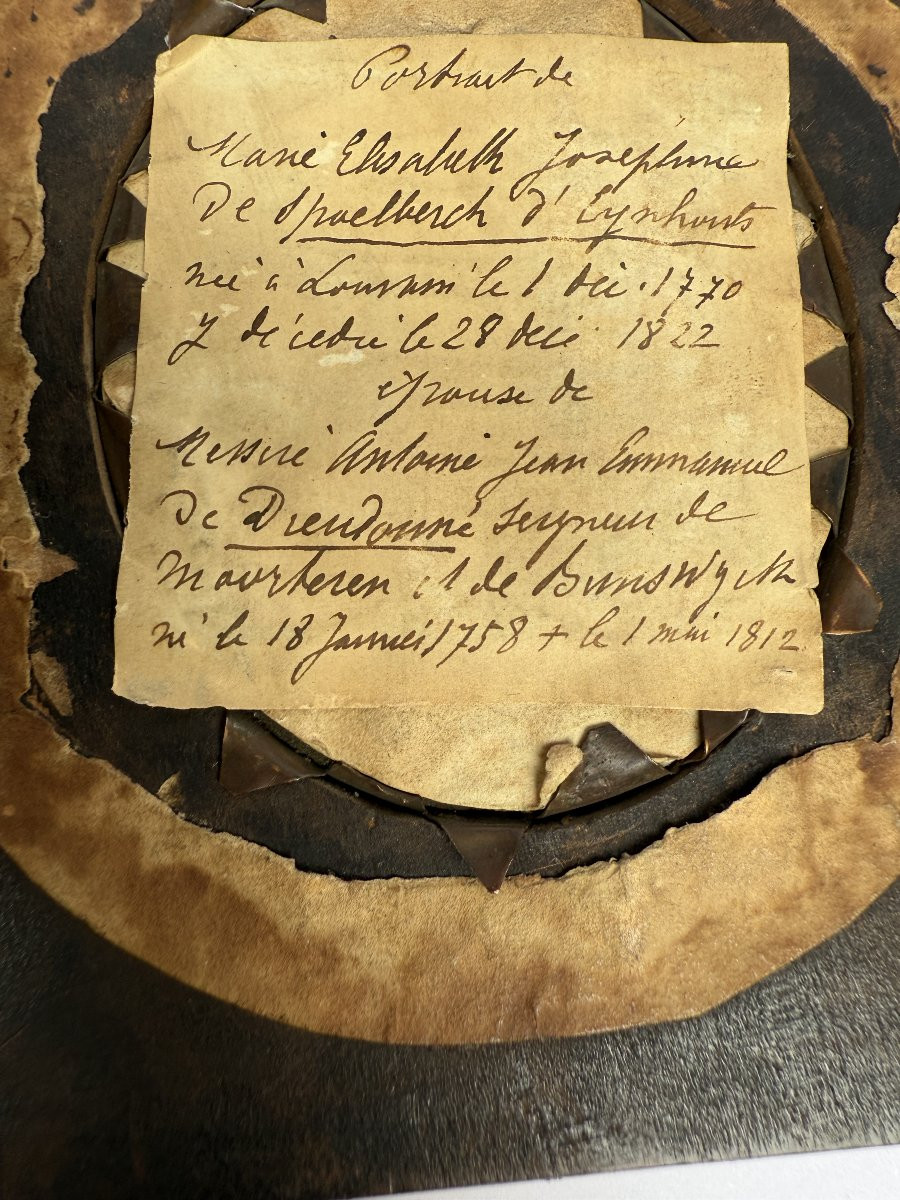 Portrait de
Marie Elisabeth Josephine
De Spoelberch d'Eynhouts
née à Louvain le 1 déc. 1770
y décédée le 28 déc. 1822
épouse de
Messire Antoine Jean Emmanuel
De Dieudonné Seigneur de
Moorteren et de Bunswyck
né le 18 Janvier 1758 + le 1 mai 1812